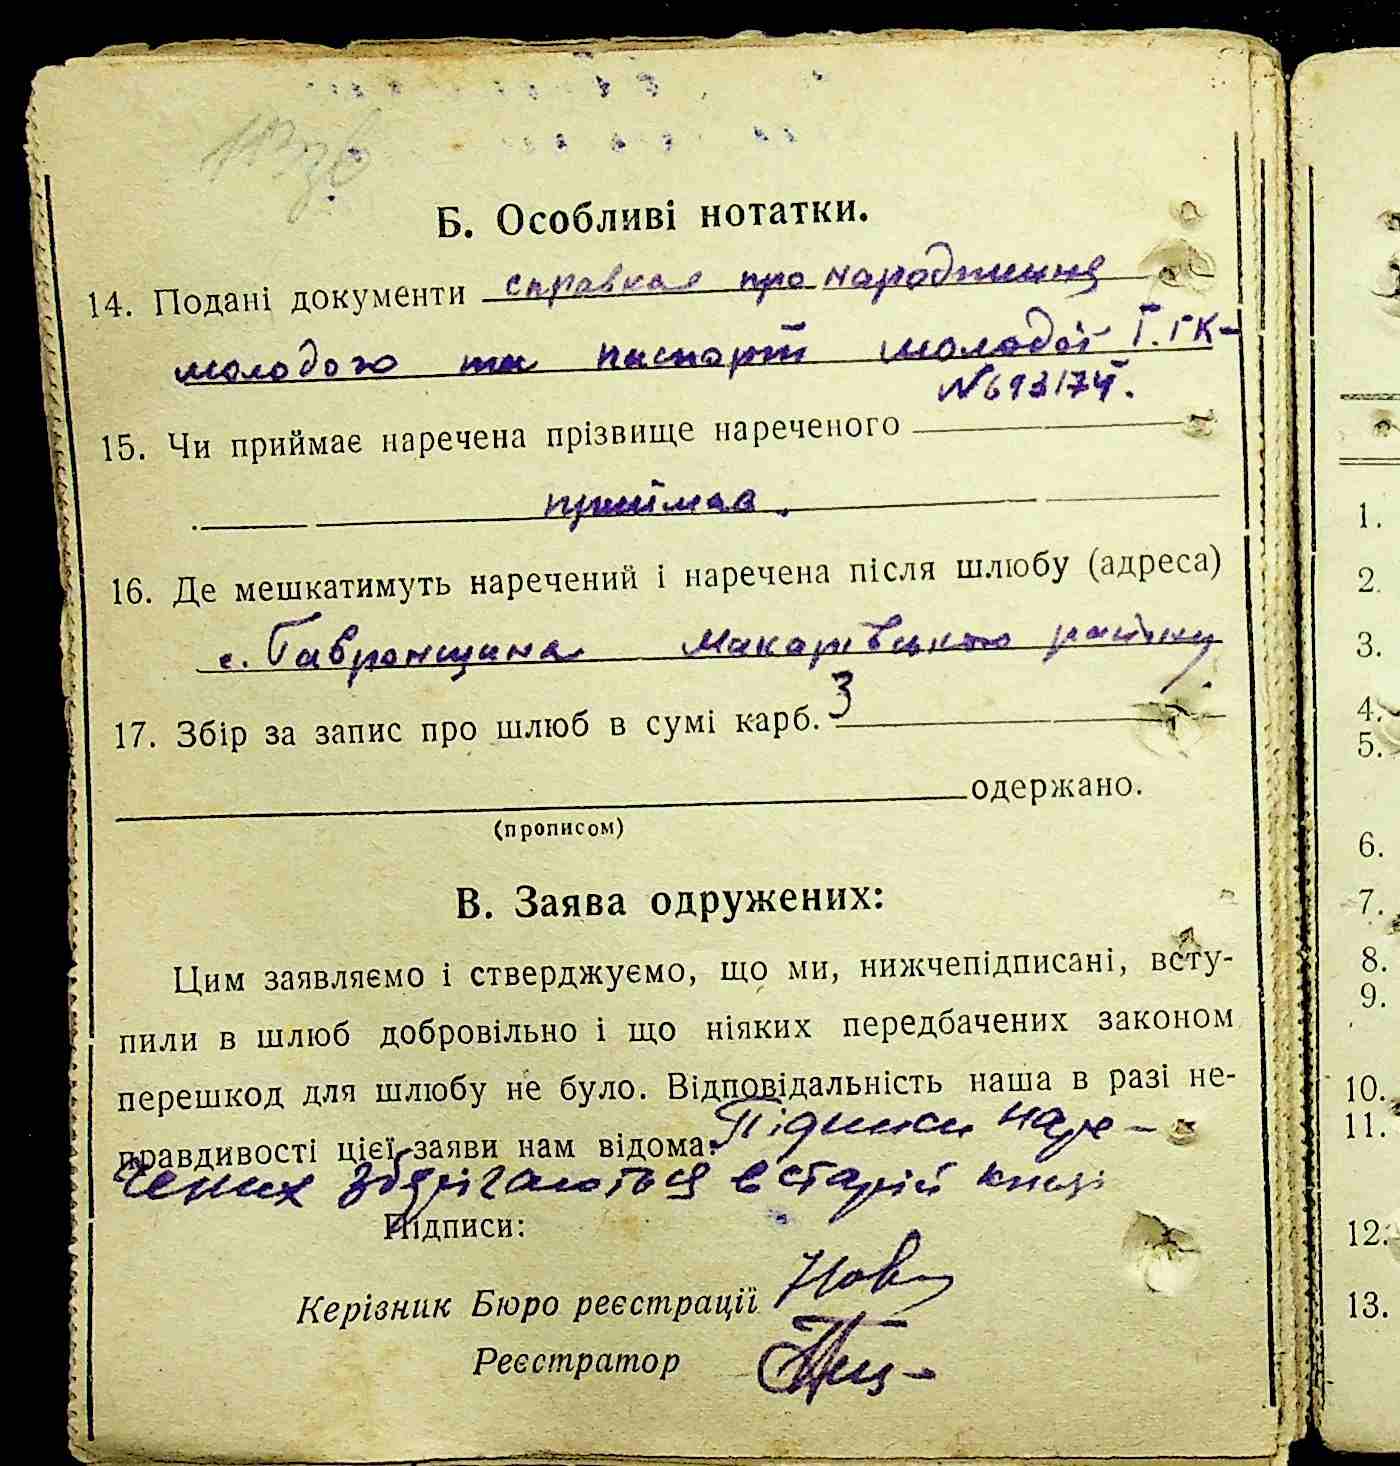 Б. Особливі нотатки.
14. Подані документи справка про народження
молодого та паспорт молодої І. ГК-
№693174.
15. Чи приймає наречена прізвище нареченого
приймає.
16. Де мешкатимуть наречений і наречена після шлюбу (адреса)
с. Гавронщина Макарівського району.
17. Збір за запис про шлюб в сумі карб. 3
одержано.
(прописом)
В. Заява одружених:
Цим заявляємо і стверджуємо, що ми, нижчепідписані, всту-
пили в шлюб добровільно і що ніяких передбачених законом
перешкод для шлюбу не було. Відповідальність наша в разі не-
правдивості цієї заяви нам відома. Підписи наре-
чених зберігаються в старій книзі
Підписи:
Керівник Бюро реєстрації
Реєстратор
1.
2.
3.
4.
5.
6.
7.
8.
9.
10.
11.
12.
13.